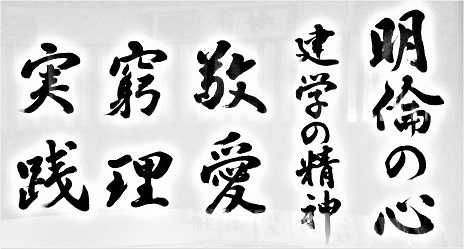 明倫の心
建学の精神
敬愛
窮理
実践